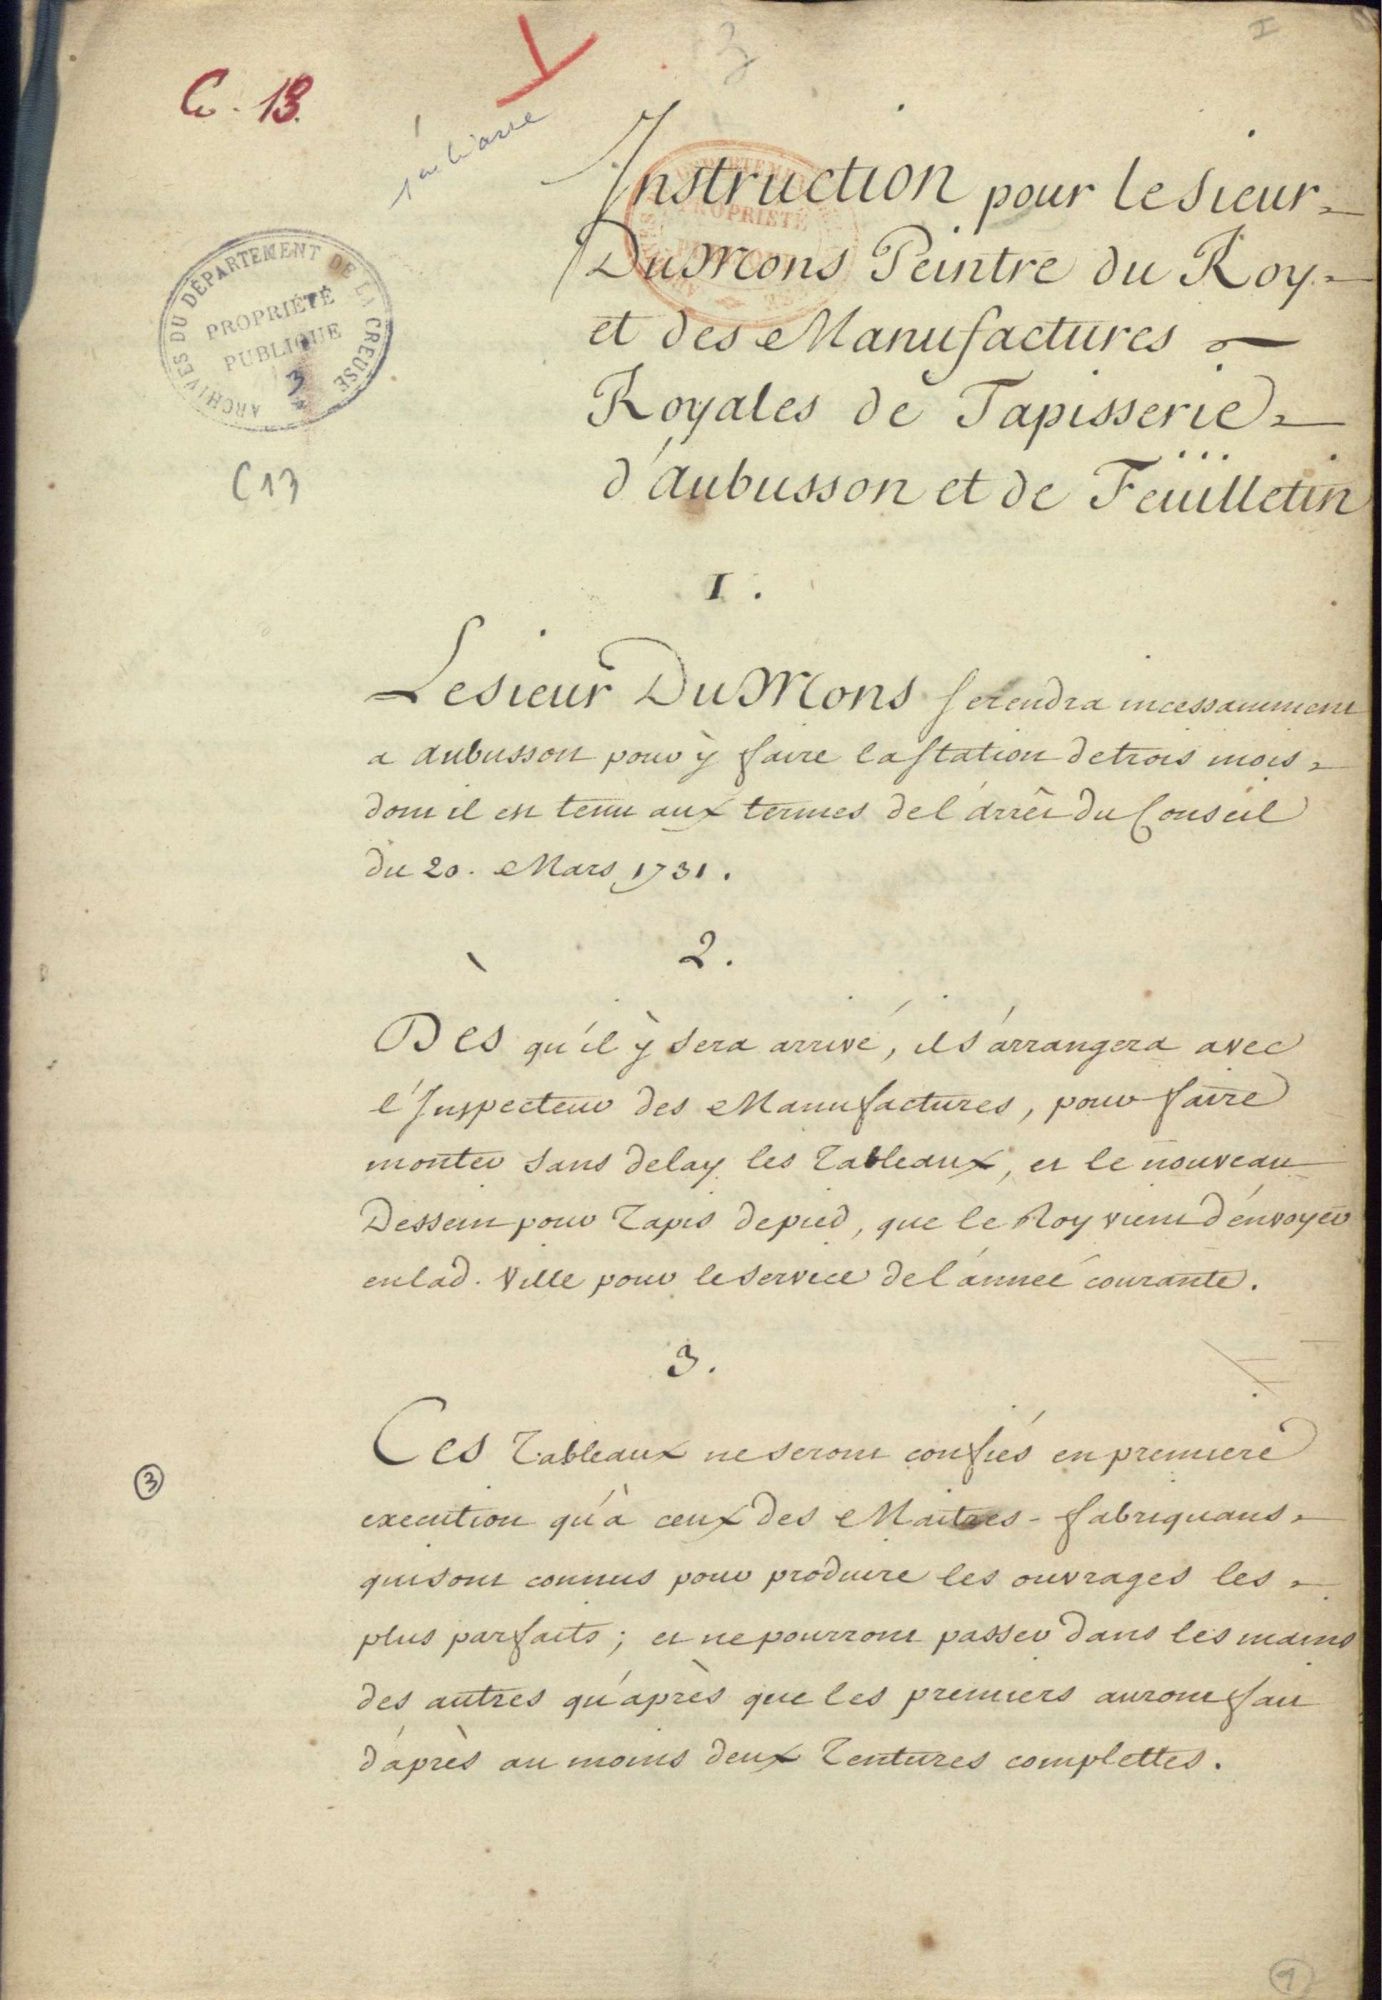 C. 13.
1re liasse
3
I
ARCHIVES DU DÉPARTEMENT DE LA CREUSE
PROPRIÉTÉ
PUBLIQUE
3
C 13
PROPRIÉTÉ
Instruction pour le Sieur
DuMons Peintre du Roy
et des Manufactures
Royales de Tapisserie
d'Aubusson et de Feüilletin
1.
Le Sieur DuMons se rendra incessamment
a Aubusson pour ÿ faire la Station de trois mois
dont il est tenu aux termes de l'arrêt du Conseil
du 20. Mars 1731.
2.
Dès qu'il ÿ sera arrivé, il s'arrangera avec
l'Inspecteur des Manufactures, pour faire
monter sans delay les Tableaux, et le nouveau
Dessein pour Tapis de pied, que le Roy vient d'envoyer
en lad. Ville pour le service de l'année courante.
3.
Ces Tableaux ne seront confiés en premiere
③
execution qu'à ceux des Maitres-fabriquans
qui sont connus pour produire les ouvrages les
plus parfaits; et ne pourront passer dans les mains
des autres qu'après que les premiers auront fait
d'après au moins deux Tentures complettes.
①